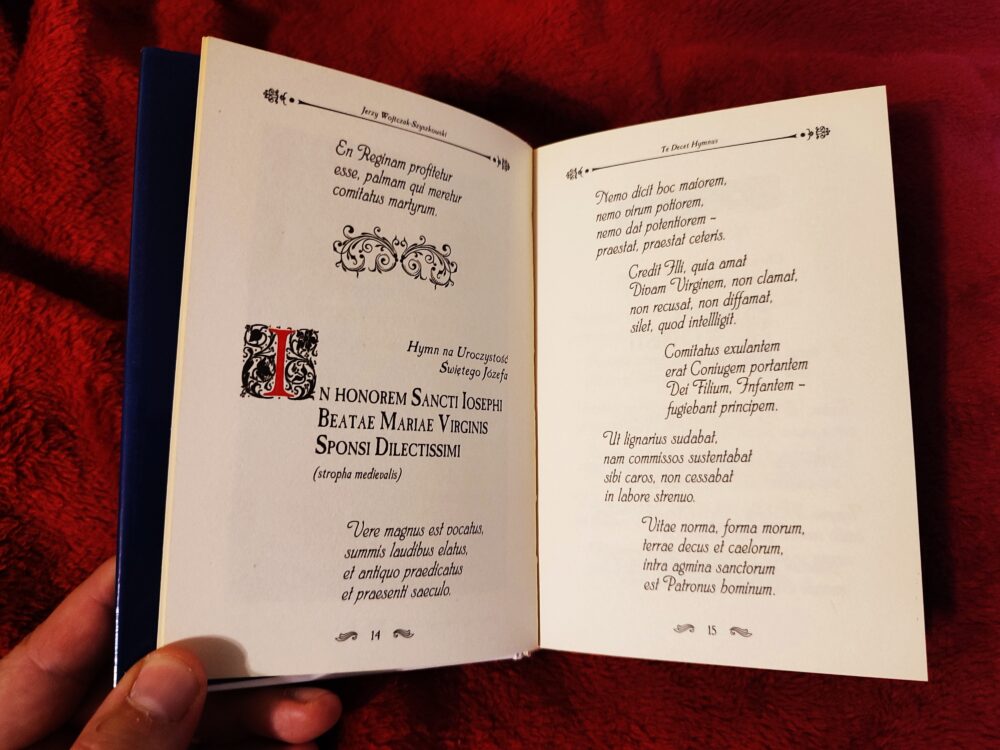 Jerzy Wojtczak-Szyszkowski
En Reginam profitetur
esse, palmam qui meretur
comitatus martyrum.
Hymn na Uroczystość
Świętego Józefa
IN HONOREM SANCTI IOSEPHI
BEATAE MARIAE VIRGINIS
SPONSI DILECTISSIMI
(stropha medievalis)
Vere magnus est vocatus,
summis laudibus elatus,
et antiquo praedicatus
et praesenti saeculo.
14
Te Decet Hymnus
Nemo dicit hoc maiorem,
nemo virum potiorem,
nemo dat potentiorem –
praestat, praestat ceteris.
Credit Illi, quia amat
Divam Virginem, non clamat,
non recusat, non diffamat,
silet, quod intellligit.
Comitatus exulantem
erat Coniugem portantem
Dei Filium, Infantem –
fugiebant principem.
Ut lignarius sudabat,
nam commissos sustentabat
sibi caros, non cessabat
in labore strenuo.
Vitae norma, forma morum,
terrae decus et caelorum,
intra agmina sanctorum
est Patronus hominum.
15